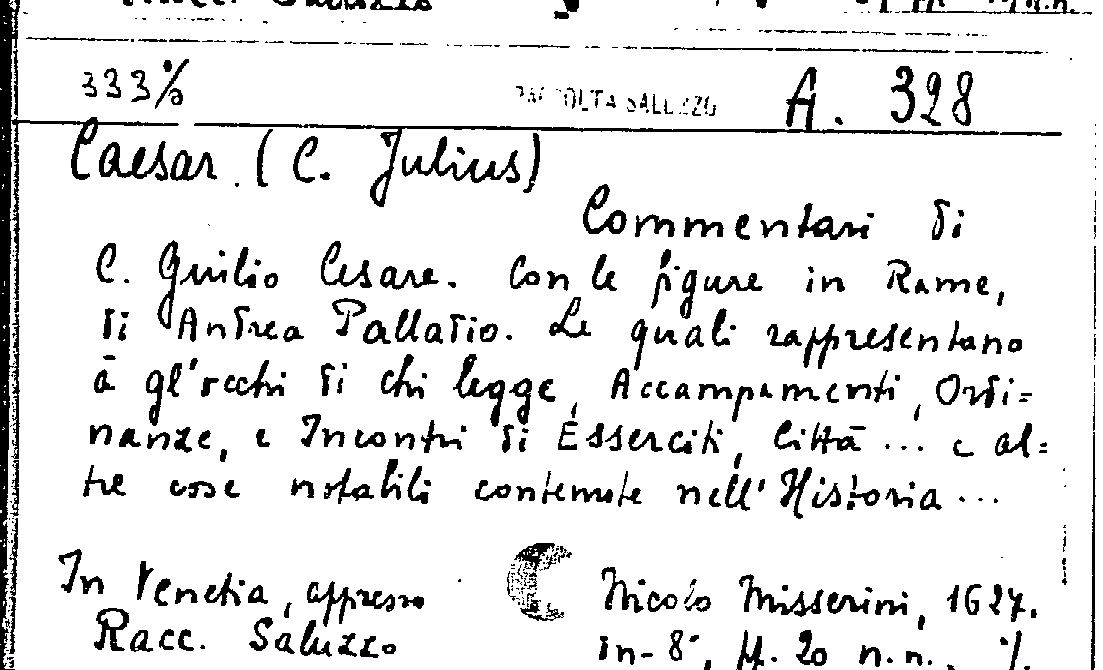 333%
RACCOLTA SALUZZO
A. 328
Caesar (C. Julius)
Commentari di
C. Giulio Cesare. Con le figure in Rame,
di Andrea Palladio. Le quali rappresentano
à gl'occhi di chi legge, Accampamenti, Ordi=
nanze, e Incontri di Esserciti, Città ... e al=
tre cose notabili contenute nell' Historia ...
In Venetia, appresso Nicolò Misserini, 1627.
Racc. Saluzzo in-8°, ff. 20 n.n.,